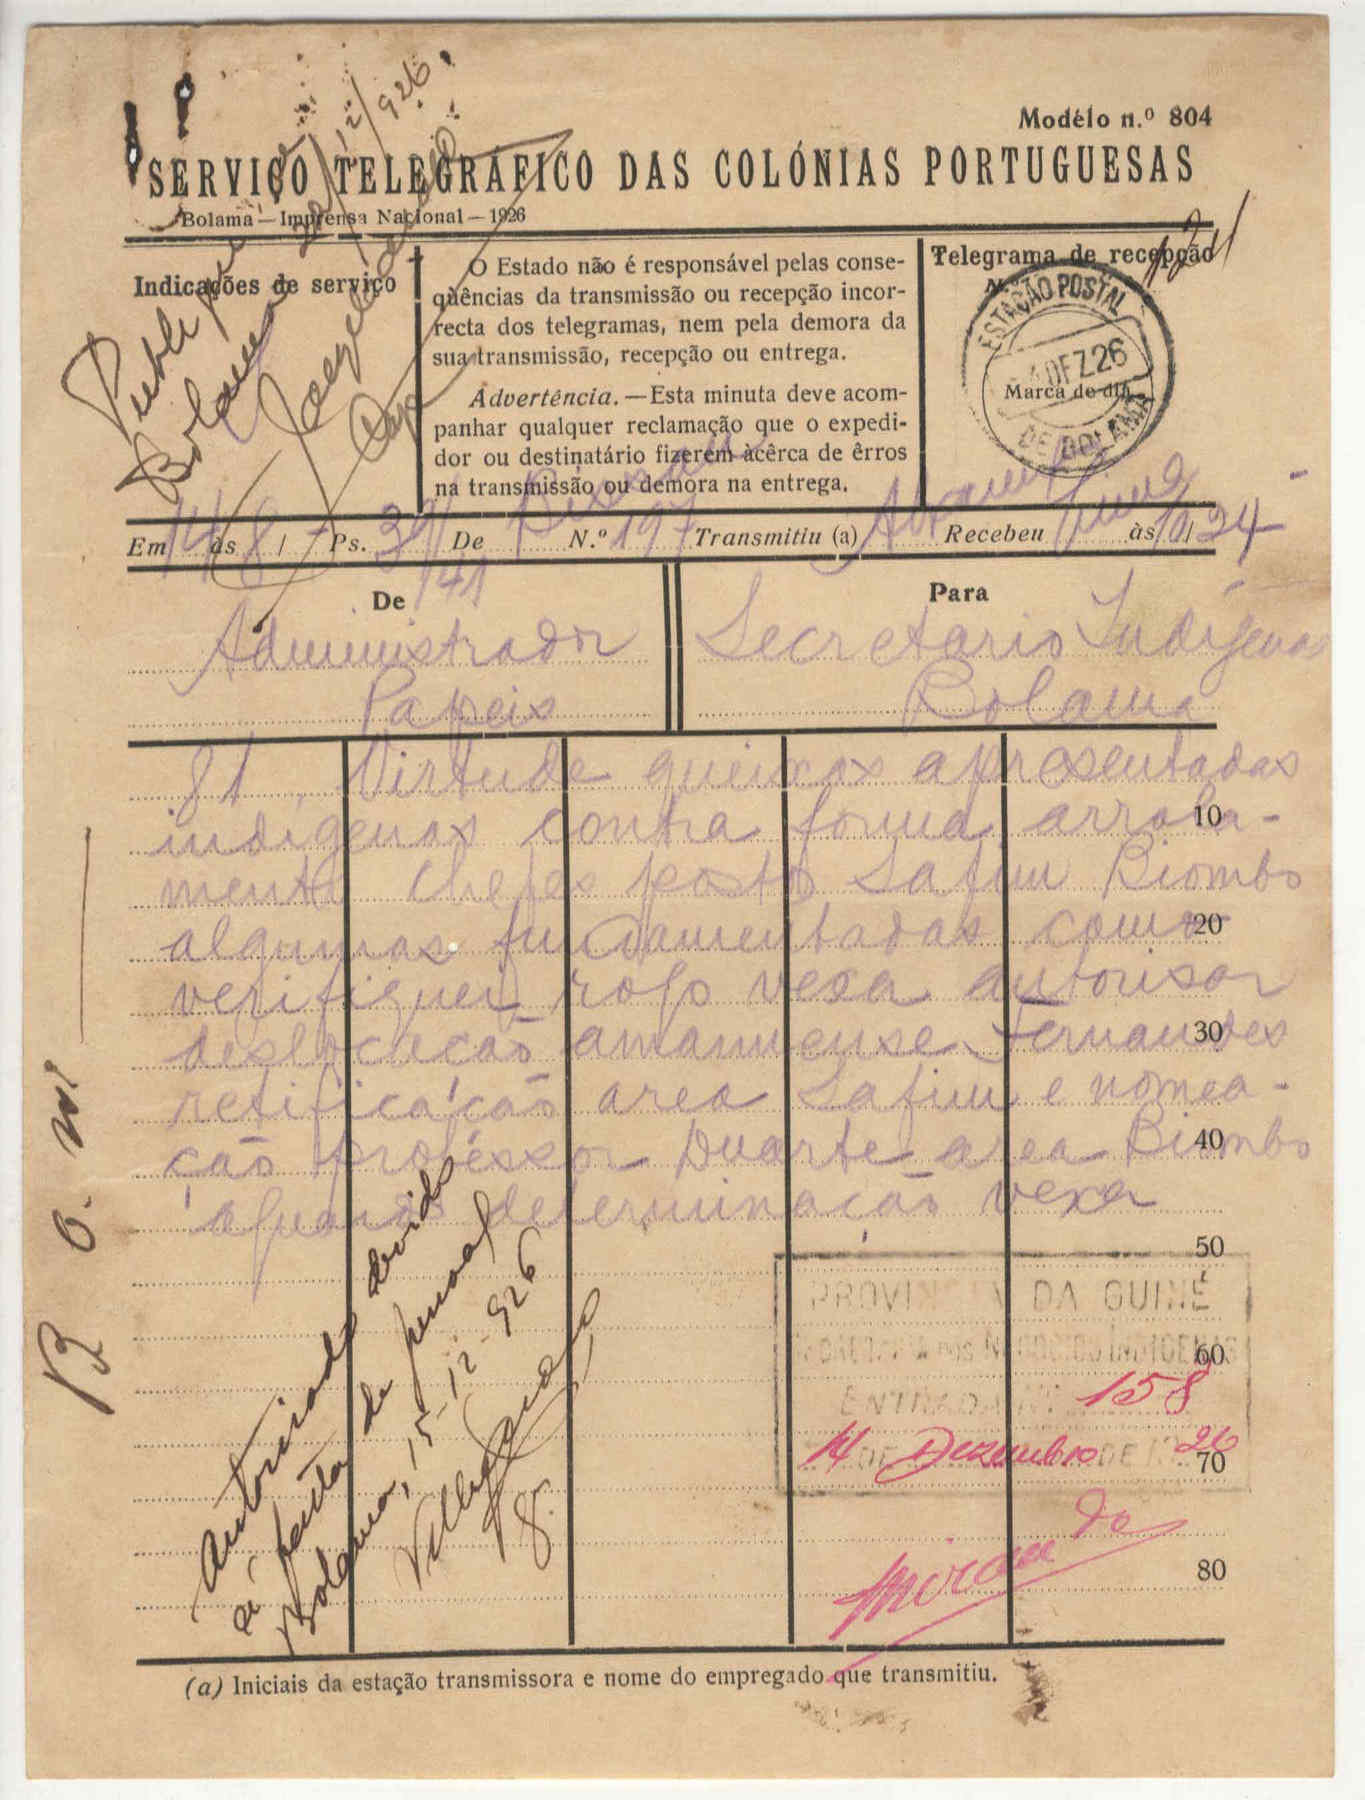 Modêlo n.º 804
SERVIÇO TELEGRÁFICO DAS COLÓNIAS PORTUGUESAS
Bolama — Imprensa Nacional — 1926
Indicações de serviço
O Estado não é responsável pelas conse-
qüências da transmissão ou recepção incor-
recta dos telegramas, nem pela demora da
sua transmissão, recepção ou entrega.
Advertência. — Esta minuta deve acom-
panhar qualquer reclamação que o expedi-
dor ou destinatário fizerem àcêrca de êrros
na transmissão ou demora na entrega.
Telegrama de recepção
ESTAÇÃO POSTAL
DEZ 26
Marca do dia
DE BOLAMA
Bolama 20/12/926
Em 14 às 8 Ps. 39/41 De Bissau N.º 197 Transmitiu (a) Recebeu às 10,24
De
Administrador
Papeis
Para
Secretario Indígenas
Bolama
81, Virtude queixas apresentadas
indigenas contra forma arrola-
mento chefes postos Safim Biombo
algumas fundamentadas como
verifiquei rogo vexa autorisar
deslocação amanuense Fernandes
retificação area Safim e nomea-
ção professor Duarte area Biombo
aguardo determinação vexa
10
20
30
40
50
60
70
80
PROVINCIA DA GUINÉ
NEGOCIOS INDIGENAS
ENTRADA Nº 158
14 DE Dezembro DE 1926
Miranda
Autorisado devido
á falta de pessoal
Bolama, 15-12-926
B. O. nº
(a) Iniciais da estação transmissora e nome do empregado que transmitiu.